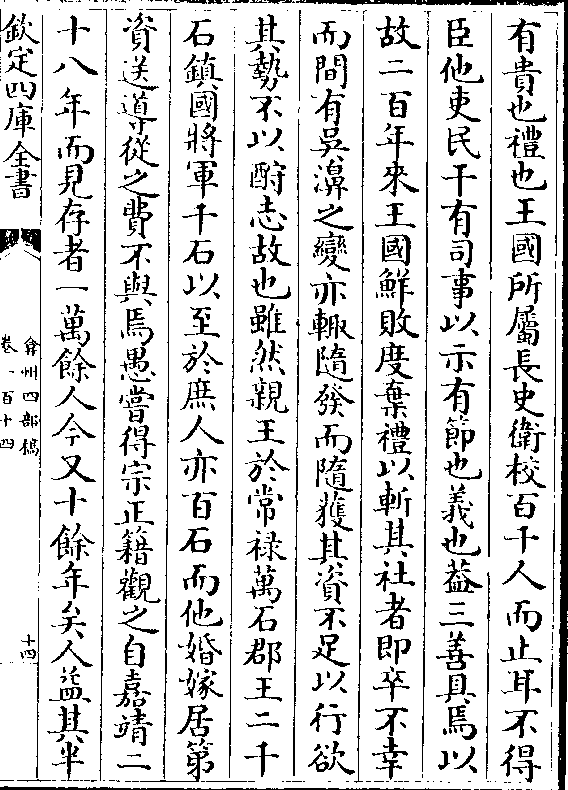 有貴也禮也王國所屬長史衛校百千人而止耳不得
臣他吏民干有司事以示有節也義也葢三善具焉以
故二百年來王國鮮敗度棄禮以斬其社者即卒不幸
而間有吳濞之變亦輙隨發而隨獲其資不足以行欲
其勢不以酧志故也雖然親王於常禄萬石郡王二千
石鎮國將軍千石以至於庶人亦百石而他婚嫁居第
資送導從之費不與焉愚嘗得宗正籍觀之自嘉靖二
十八年而見存者一萬餘人今又十餘年矣人益其半
欽定四庫全書
弇州四部稿
卷一百十四
十四